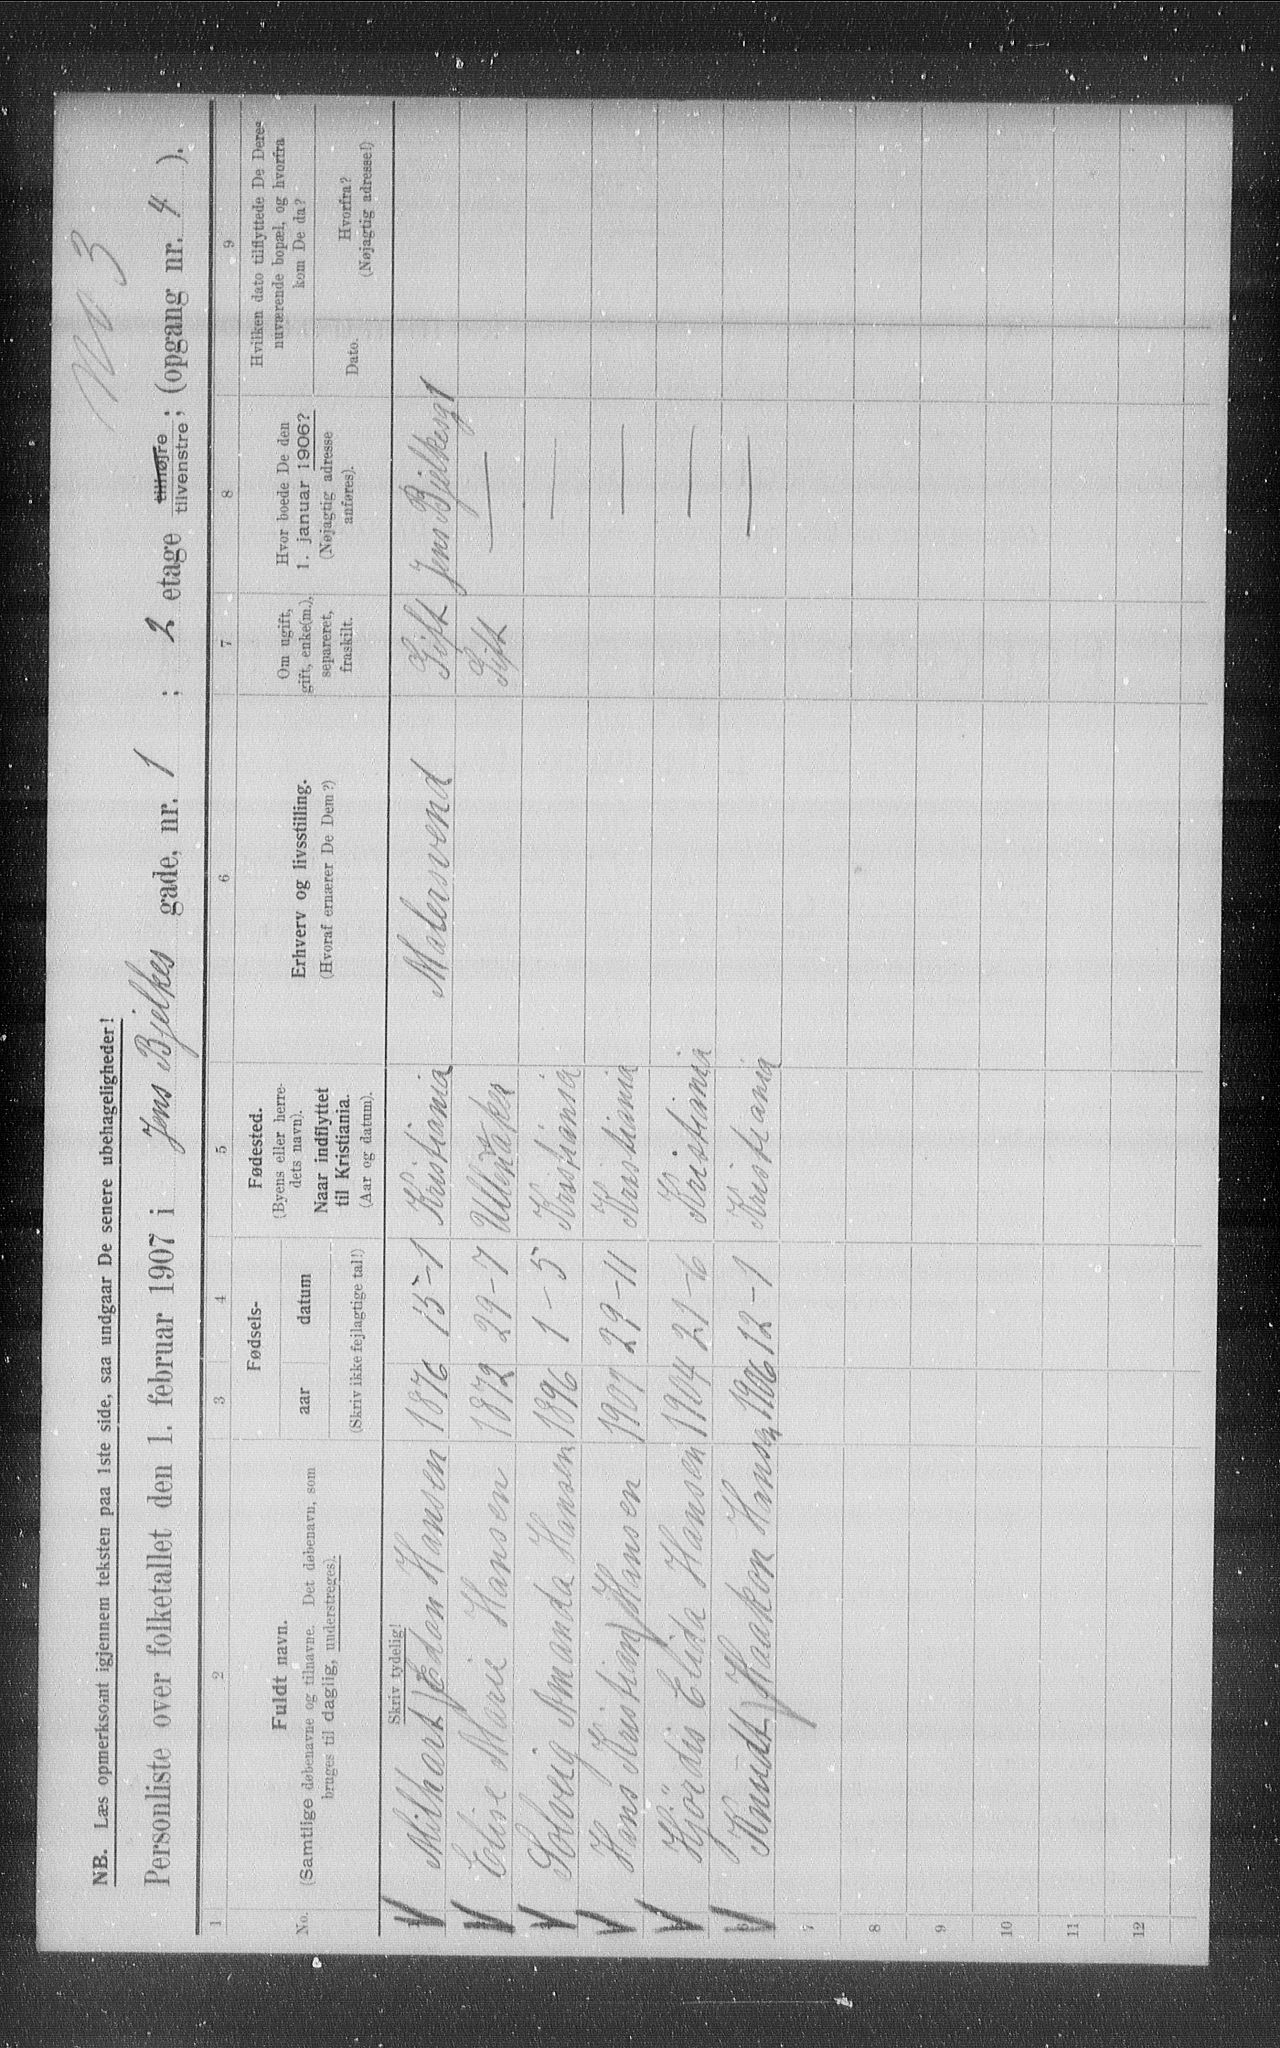 No 3
NB. Læs opmerksomt igjennem teksten paa 1ste side, saa undgaar De senere ubehageligheder!
Personliste over folketallet den 1. februar 1907 i Jens Bjelkes gade, nr. 1 ; 2 etage tilhøjre ; tilvenstre ; (opgang nr. 4 ).
1 2 3 4 5 6 7 8 9
No.
Fuldt navn.
(Samtlige døbenavne og tilnavne. Det døbenavn, som
bruges til daglig, understreges).
Skriv tydelig!
Fødsels-
aar datum
(Skriv ikke fejlagtige tal!)
Fødested.
(Byens eller herre-
dets navn).
Naar indflyttet
til Kristiania.
(Aar og datum).
Erhverv og livsstilling.
(Hvoraf ernærer De Dem?)
Om ugift,
gift, enke(m.),
separeret,
fraskilt.
Hvor boede De den
1. januar 1906?
(Nøjagtig adresse
anføres).
Hvilken dato tilflyttede De Deres
nuværende bopæl, og hvorfra
kom De da?
Dato.
Hvorfra?
(Nøjagtig adresse!)
Milhart Edon Hansen 1876 15-1 Kristiania Malersvend Gift Jens Bjelkesgt 1
Elise Marie Hansen 1872 29-7 Ullensaker Gift —
Solveig Amanda Hansen 1896 1-5 Kristiania —
Hans Kristian Hansen 1901 29-11 Kristiania —
Hjördis Elida Hansen 1904 21-6 Kristiania —
Knudt Haakon Hansen 1906 12-1 Kristiania —
7
8
9
10
11
12